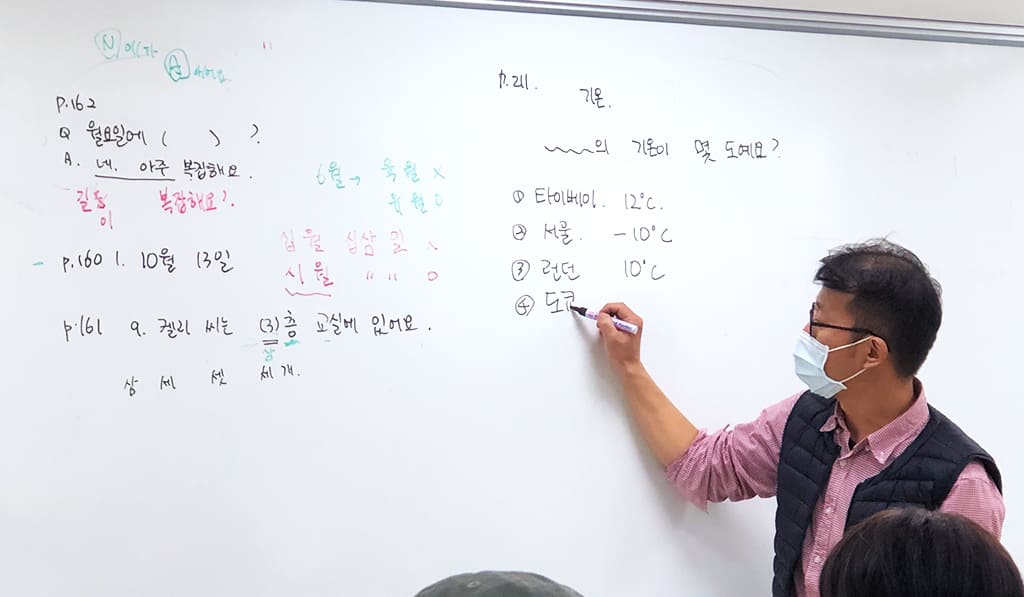 N 이/가
A
"
p.162
Q 월요일에 ( ) ?
A. 네. 아주 복잡해요.
길동이 복잡해요?
6월 → 육 월 X
유 월 O
십 월 십삼 일 \
시 월 " " O
- p.160 1. 10월 13일
p.161 9. 켈리 씨는 (3)층 교실에 있어요.
삼
삼 세 셋 세 개.
p.211.
기온.
의 기온이 몇 도예요?
① 타이베이. 12°C.
② 서울. -10°C
③ 런던 10°C
④ 도쿄